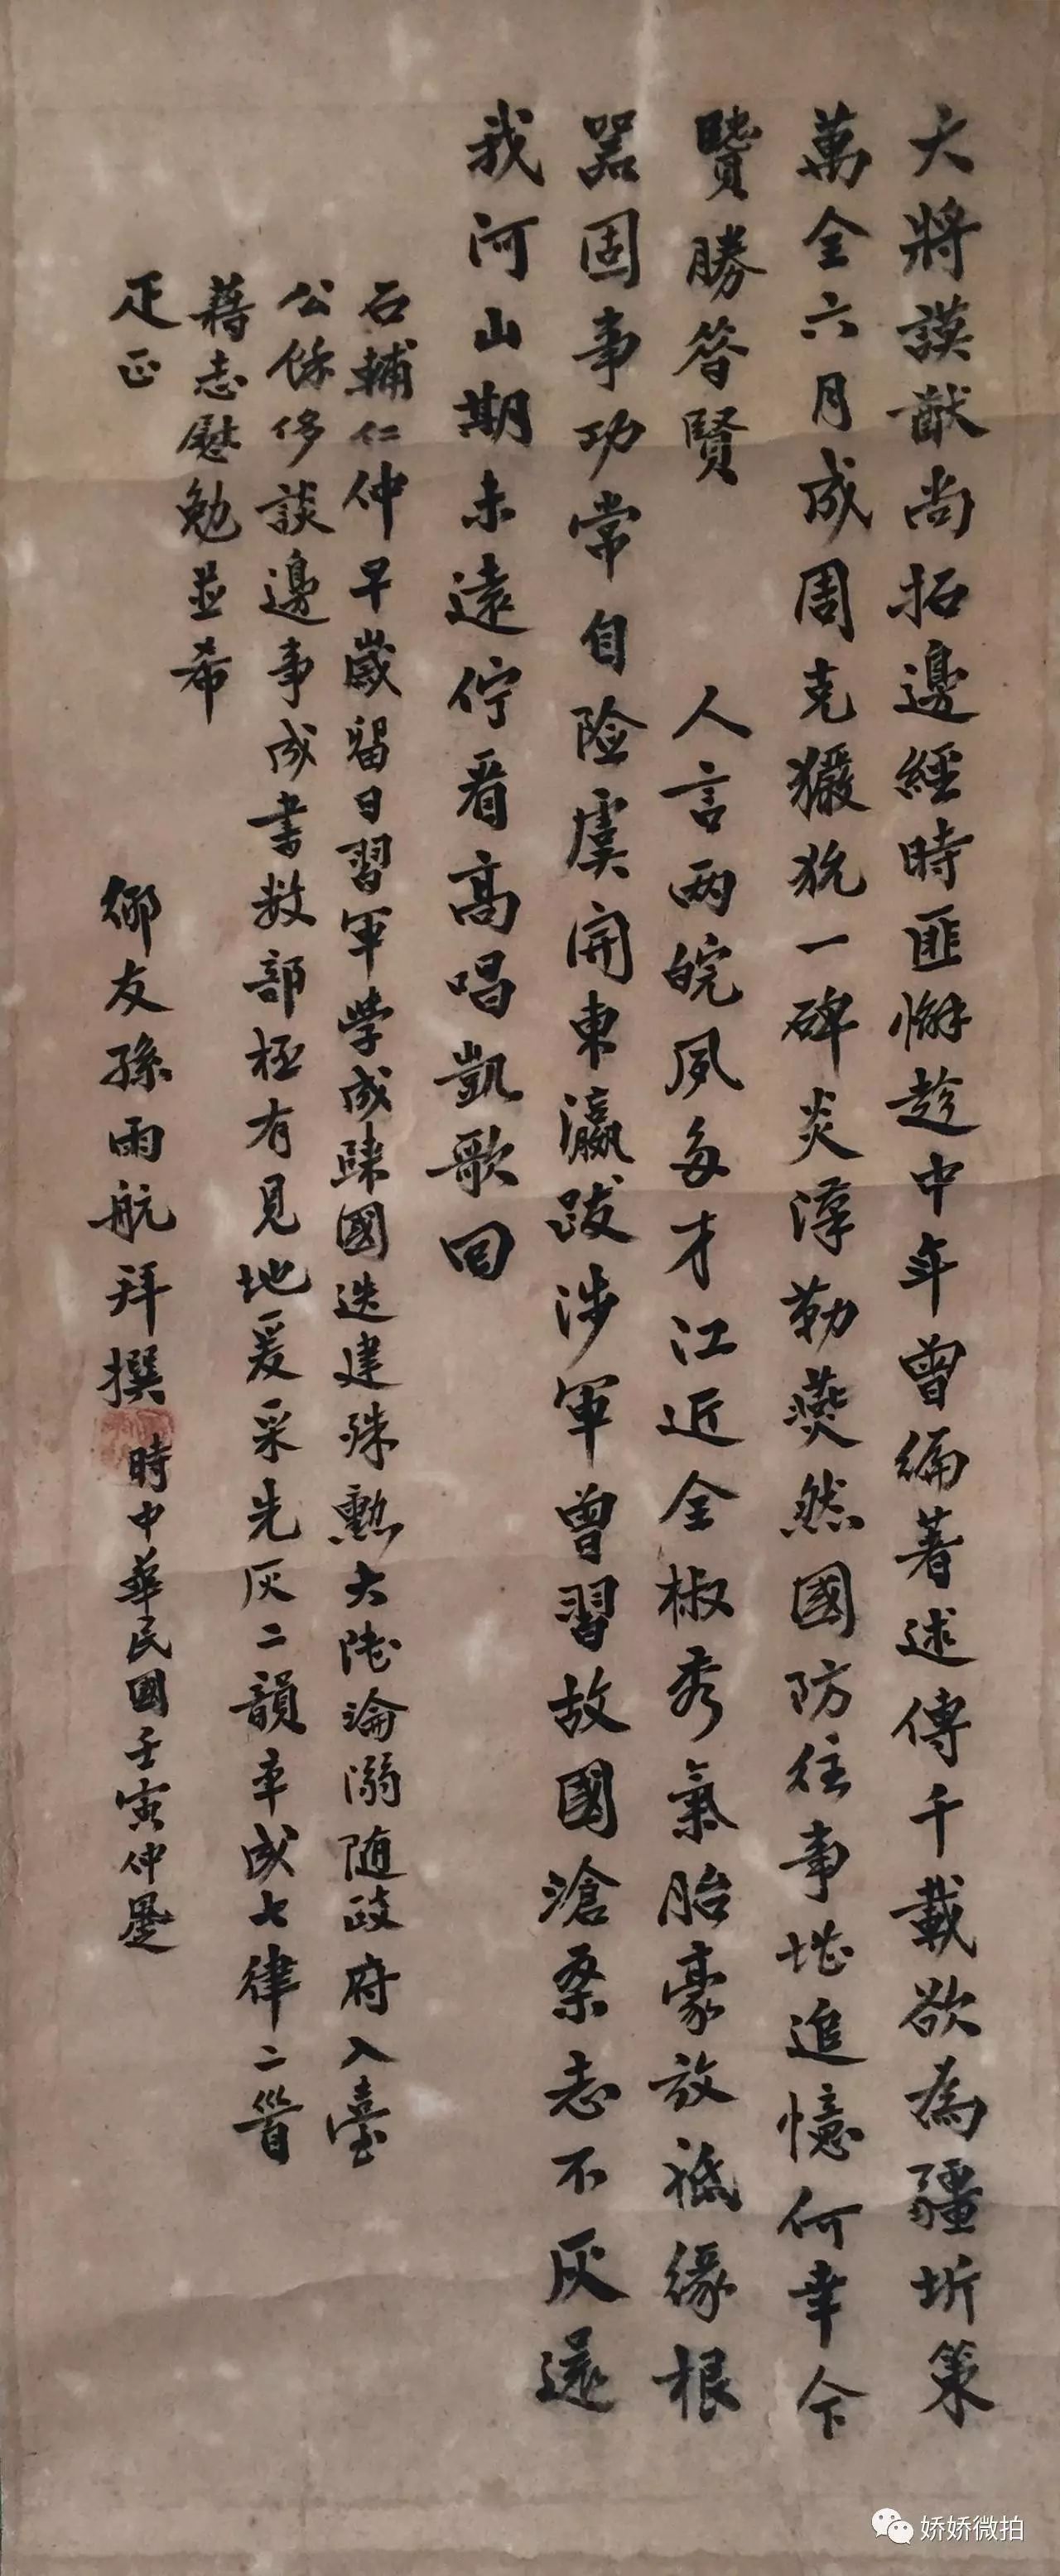 大將謨猷尚拓邊經時匪懈趁中年曾編著述傳千載欲為疆圻策
萬全六月成周克玁狁一碑炎漢勒燕然國防往事堪追憶何幸今
賢勝昝賢　人言两皖夙多才江近全椒秀氣胎豪放祗緣根
器固事功常自险虞開東瀛跋涉軍曾習故國滄桑志不灰還
我河山期未遠佇看高唱凱歌回
石輔仁仲早歲留日習軍學成歸國迭建殊勳大陸淪溺随政府入臺
公餘侈談邊事成書数部極有見地爰采先灰二韻率成七律二首
藉志慰勉並希
疋正
鄉友孫雨航拜撰
時中華民國壬寅仲夏
娇娇微拍